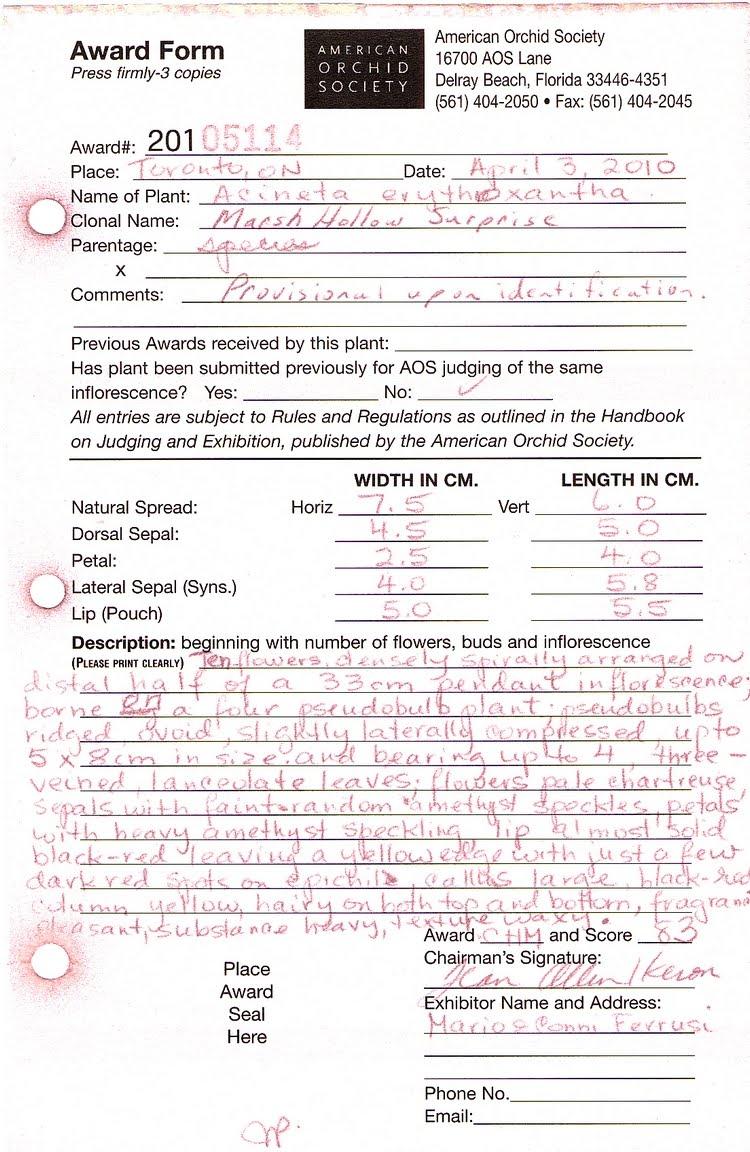 Award Form
Press firmly-3 copies
AMERICAN
ORCHID
SOCIETY
American Orchid Society
16700 AOS Lane
Delray Beach, Florida 33446-4351
(561) 404-2050 • Fax: (561) 404-2045
Award#: 20105114
Place: Toronto, ON Date: April 3, 2010
Name of Plant: Acineta erythroxantha
Clonal Name: Marsh Hollow Surprise
Parentage: species
x
Comments: Provisional upon identification.
Previous Awards received by this plant:
Has plant been submitted previously for AOS judging of the same
inflorescence? Yes: No: ✓
All entries are subject to Rules and Regulations as outlined in the Handbook
on Judging and Exhibition, published by the American Orchid Society.
WIDTH IN CM. LENGTH IN CM.
Natural Spread: Horiz 7.5 Vert 6.0
Dorsal Sepal: 4.5 5.0
Petal: 2.5 4.0
Lateral Sepal (Syns.) 4.0 5.8
Lip (Pouch) 5.0 5.5
Description: beginning with number of flowers, buds and inflorescence
(PLEASE PRINT CLEARLY) Ten flowers, densely spirally arranged on
distal half of a 33cm pendant inflorescence;
borne on a four pseudobulb plant; pseudobulbs
ridged, ovoid, slightly laterally compressed, up to
5 x 8cm in size and bearing up to 4, three-
veined, lanceolate leaves; flowers pale chartreuse,
sepals with faint random amethyst speckles, petals
with heavy amethyst speckling lip almost solid
black-red leaving a yellow edge with just a few
dark red spots on epichile, callus large, black-red
column yellow, hairy on both top and bottom, fragrance
pleasant, substance heavy, texture waxy.
Award CHM and Score 83
Chairman's Signature:
Jean Allen Ikeson
Place
Award
Seal
Here
Exhibitor Name and Address:
Mario & Conni Ferrusi
Phone No.
Email: